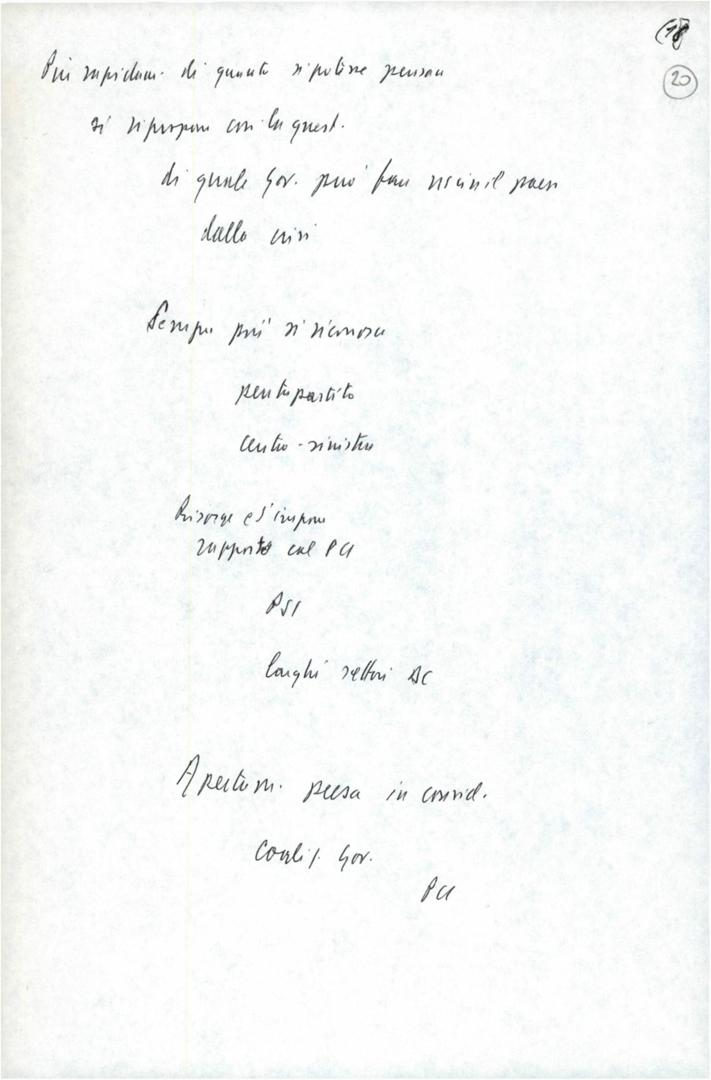 (18)
20
Più rapidam. di quanto si potesse pensare
si ripropone con la quest.
di quale Gov. può fare uscire il paese
dalla crisi
Sempre più si riconosce
pentapartito
centro-sinistra
Risorge e s'impone
rapporto col PCI
PSI
larghi settori DC
Apertam. presa in consid.
Gov.
PCI